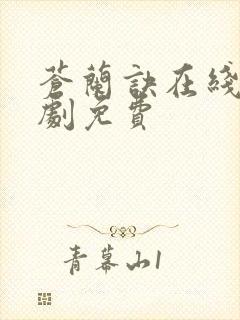 蒼蘭訣在綫
劇免費
青幕山1